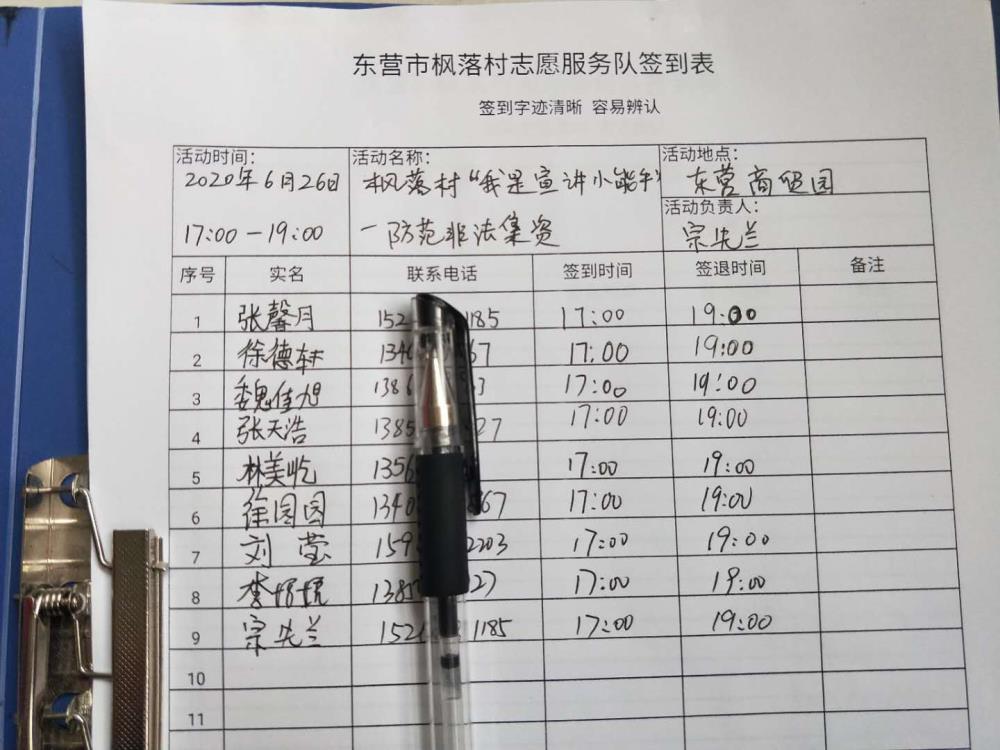 东营市枫落村志愿服务队签到表
签到字迹清晰 容易辨认
活动时间: 活动名称: 活动地点:
2020年6月26日 枫落村“我是宣讲小能手” 东营商贸园
活动负责人:
17:00-19:00 一防范非法集资 宗先兰
序号 实名 联系电话 签到时间 签退时间 备注
1 张馨月 152 1185 17:00 19:00
2 徐德轩 134 67 17:00 19:00
3 魏佳旭 1386 3 17:00 19:00
4 张天浩 1385 27 17:00 19:00
5 林美屹 1356 17:00 19:00
6 徐园园 1340 867 17:00 19:00
7 刘莹 159 2203 17:00 19:00
8 李 1385 27 17:00 19:00
9 宗先兰 152 1185 17:00 19:00
10
11